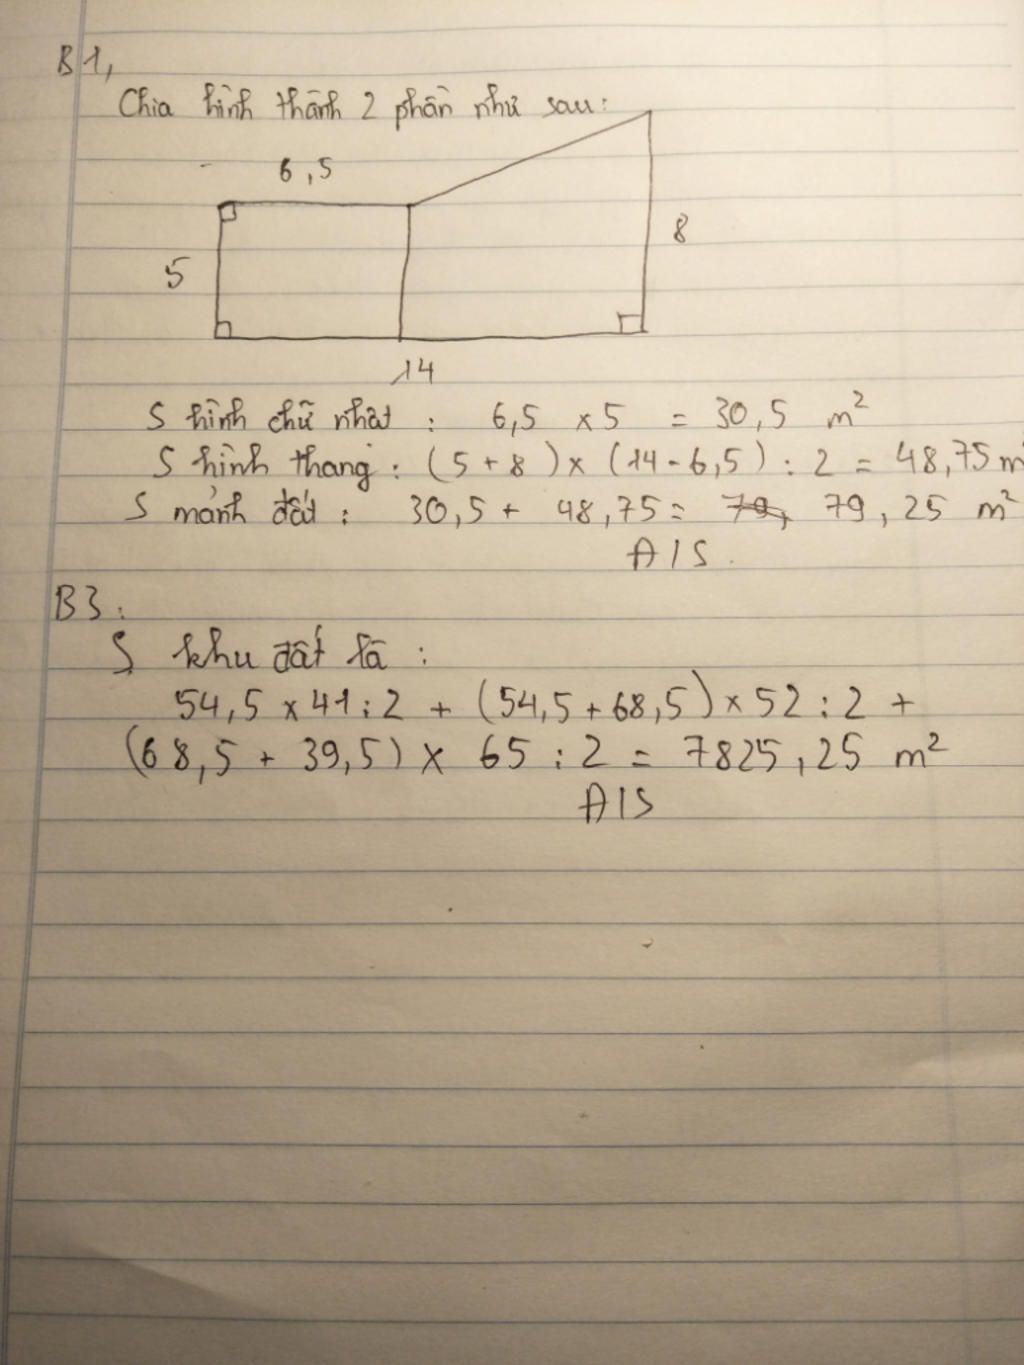 B1,
Chia hình thành 2 phần như sau:
6,5
5
8
14
S hình chữ nhật : 6,5 x 5 = 30,5 m²
S hình thang : (5 + 8) x (14 - 6,5) : 2 = 48,75 m²
S mảnh đất : 30,5 + 48,75 = 79, 79,25 m²
Đ/S.
B3:
S khu đất là :
54,5 x 41 : 2 + (54,5 + 68,5) x 52 : 2 +
(68,5 + 39,5) x 65 : 2 = 7825,25 m²
Đ/S